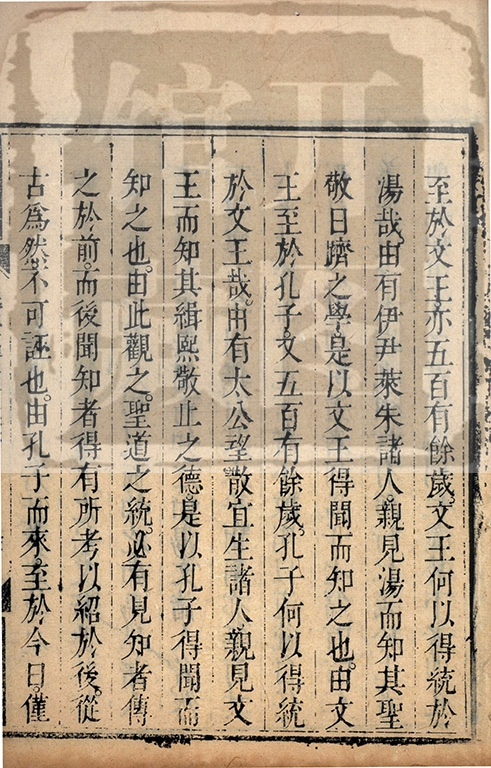 至於文王亦五百有餘歲。文王何以得統於
湯哉。由有伊尹萊朱諸人。親見湯而知其聖
敬日躋之學。是以文王得聞而知之也。由文
王至於孔子。又五百有餘歲。孔子何以得統
於文王哉。由有太公望散宜生諸人親見文
王而知其緝熙敬止之德。是以孔子得聞而
知之也。由此觀之。聖道之統。必有見知者傳
之於前。而後聞知者得有所考以紹於後。從
古爲然。不可誣也。由孔子而來。至於今日。僅